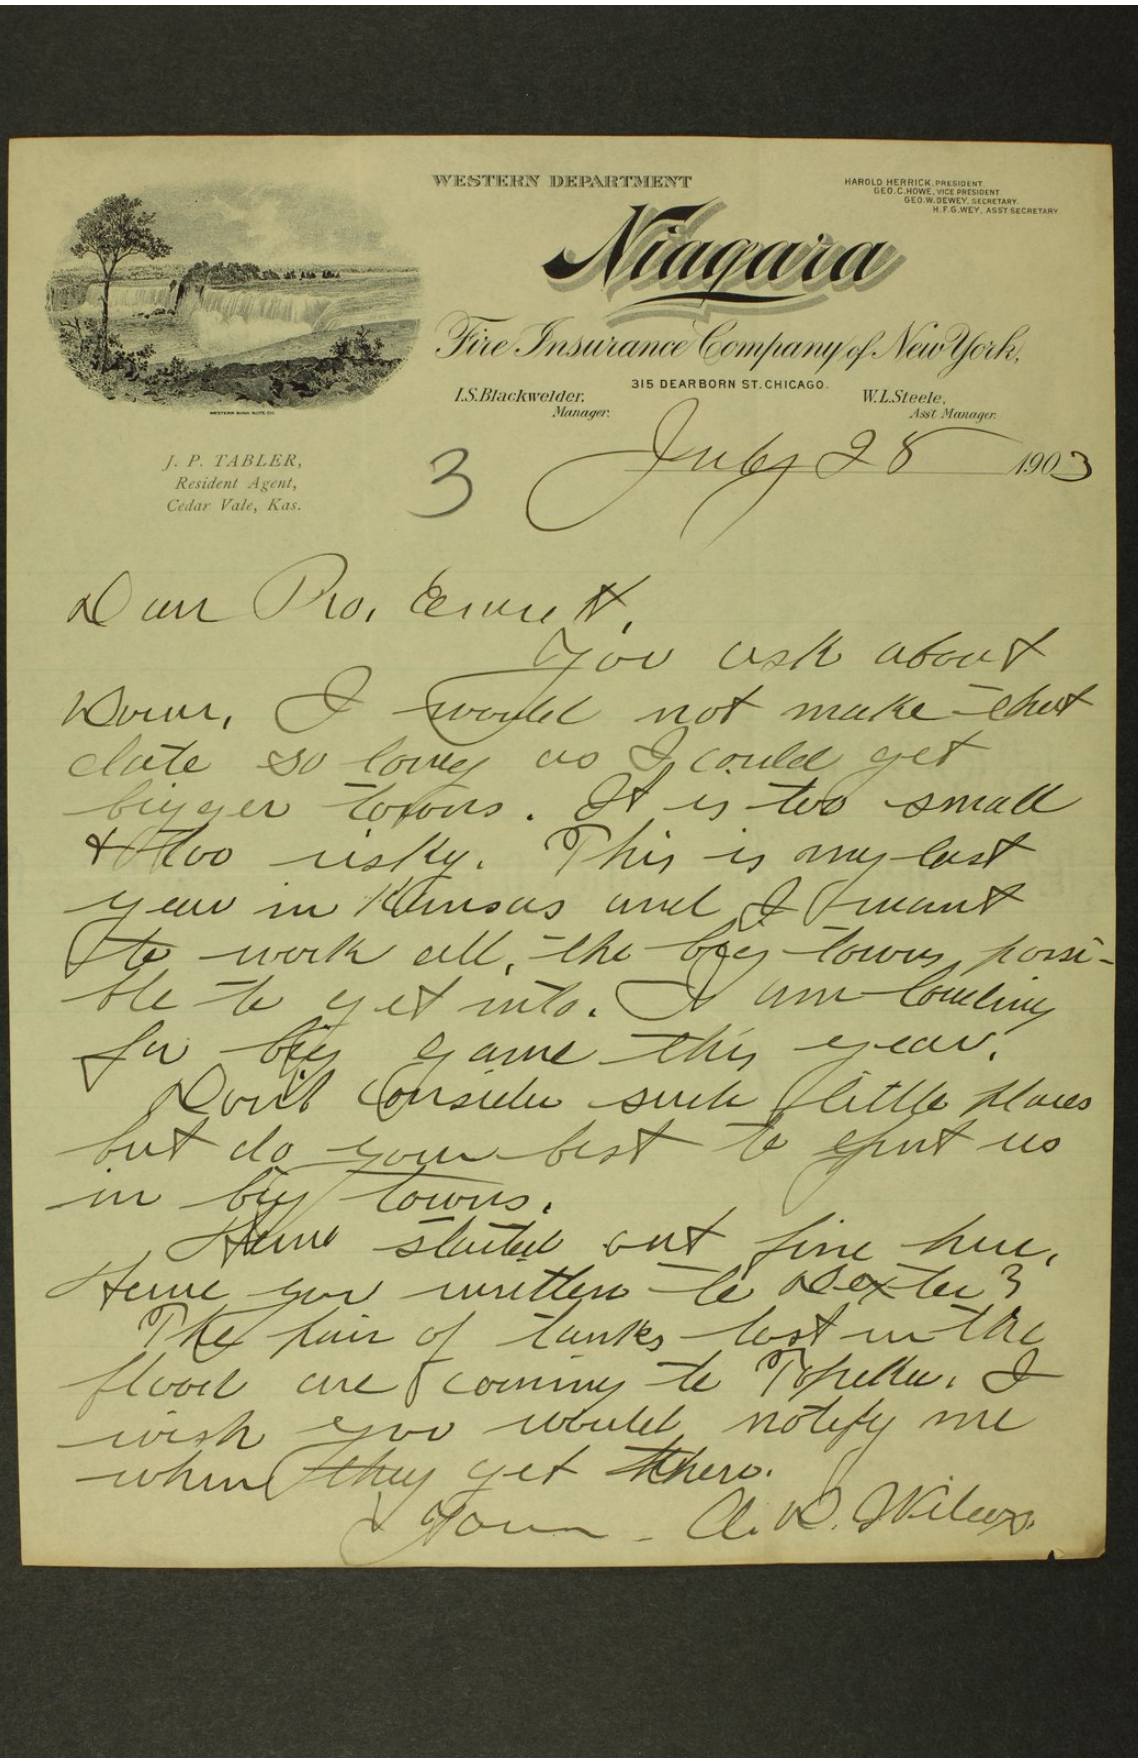 WESTERN DEPARTMENT
HAROLD HERRICK, PRESIDENT
GEO. C. HOWE, VICE PRESIDENT
GEO. W. DEWEY, SECRETARY.
H. F. G. WEY, ASST SECRETARY
Niagara
Fire Insurance Company of New York,
315 DEARBORN ST. CHICAGO.
I.S. Blackwelder,
Manager.
W.L. Steele,
Ass't Manager.
WESTERN BANK NOTE CO.
J. P. TABLER,
Resident Agent,
Cedar Vale, Kas.
3
July 28 1903
Dear Bro.
You ask about
I would not make that
date so long as I could get
bigger towns. It is too small
& too risky. This is my last
year in Kansas and I want
to work all the big towns possi-
ble to get into. I am
for big game this year.
Don't consider such little places
but do your best to put us
in big towns.
Have started out fine here.
Have you written to Dexter?
The pair of tanks lost in the
flood are coming to Topeka. I
wish you would notify me
when they get there.
Yours - A. D. Wilcox.